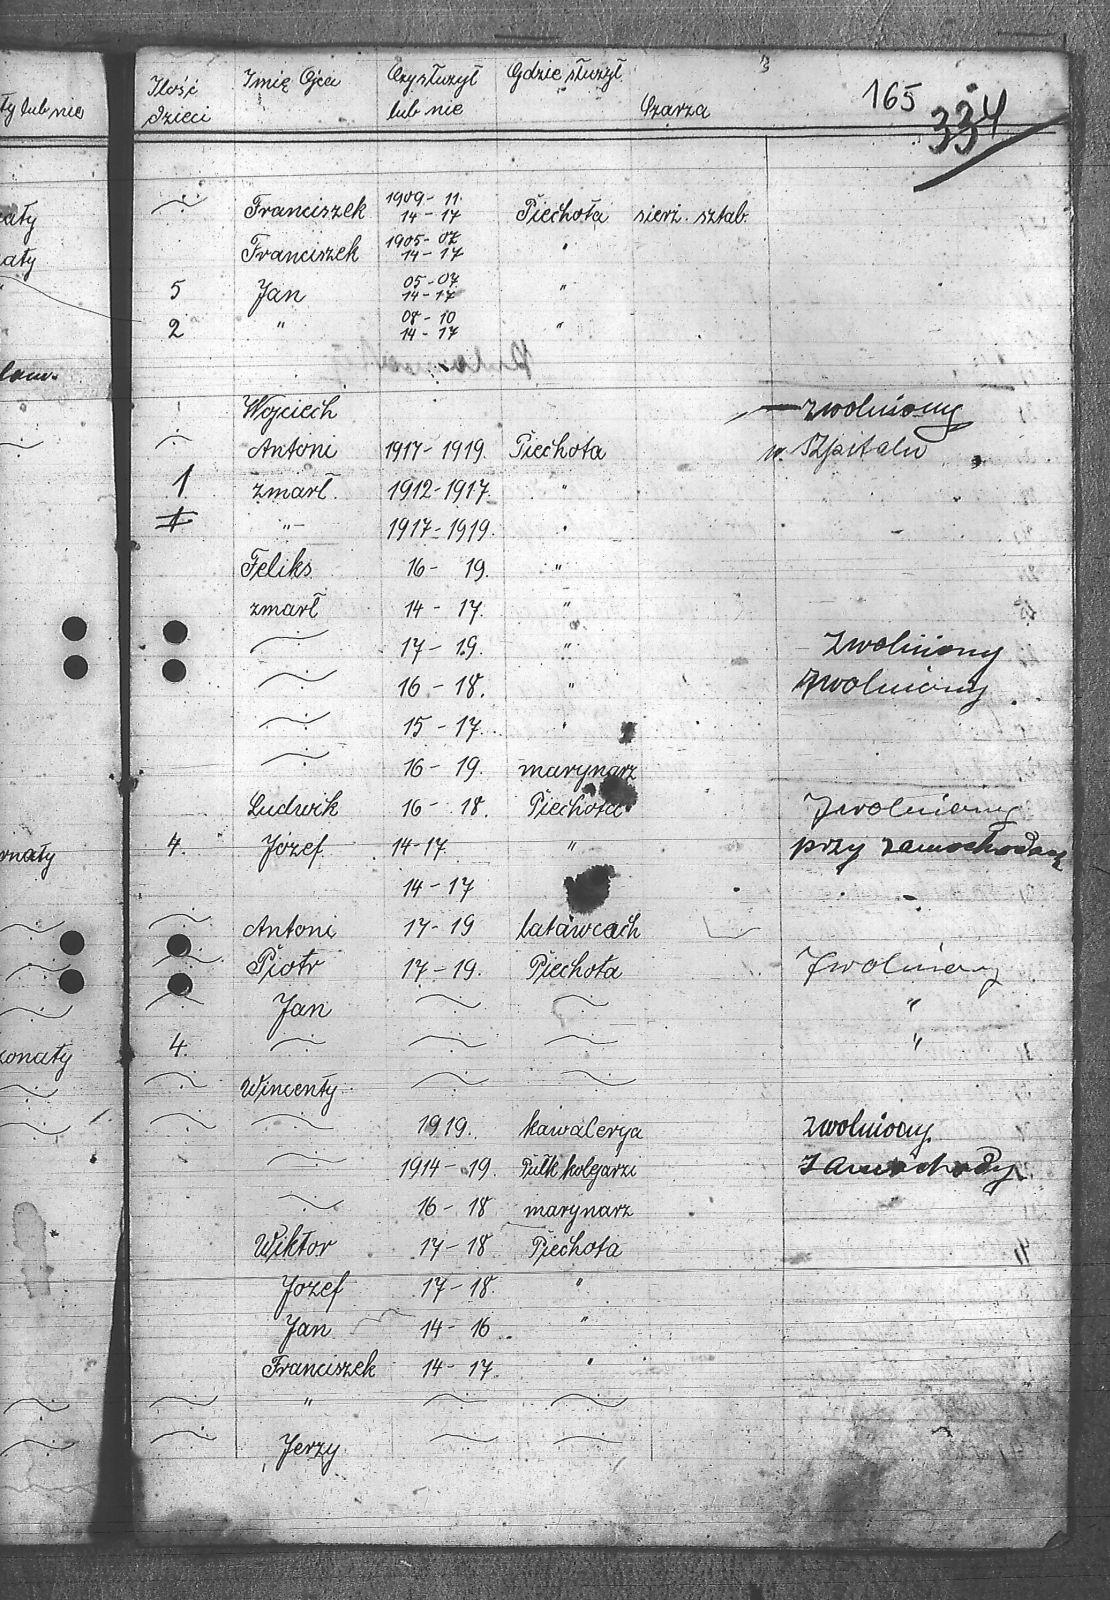 ły lub nie Ilość dzieci Imię Ojca Czy służył lub nie Gdzie służył Czarza 165 334
aty ~ Franciszek 1909-11. 14-17 Piechota sierż. sztab.
aty Franciszek 1905-07 14-17 "
" 5 Jan 05-07 14-17 "
2 " 08-10 14-17 "
Wojciech zwolniony
~ Antoni 1917-1919 Piechota w Szpitalu
1 zmarł. 1912-1917. "
1 " 1917-1919. "
Feliks 16-19. "
zmarł 14-17. "
~ 17-19. " Zwolniony
~ 16-18. " Zwolniony
~ 15-17. "
~ 16-19. marynarz
Ludwik 16-18. Piechota Zwolniony
4. Józef 14-17. " przy zamochodach
14-17
~ Antoni 17-19 latawcach
~ Piotr 17-19. Piechota Zwolniony
~ Jan ~ ~ "
onaty 4. ~ ~ ~ "
~ Wincenty ~ ~
~ ~ 1919. kawalerya zwolniony.
~ 1914-19. Pułk kolejarzi zamochody
~ 16-18 marynarz
Wiktor 17-18 Piechota
Józef 17-18. "
Jan 14-16 "
Franciszek 14-17. "
~ " ~ ~
~ Jerzy ~ ~